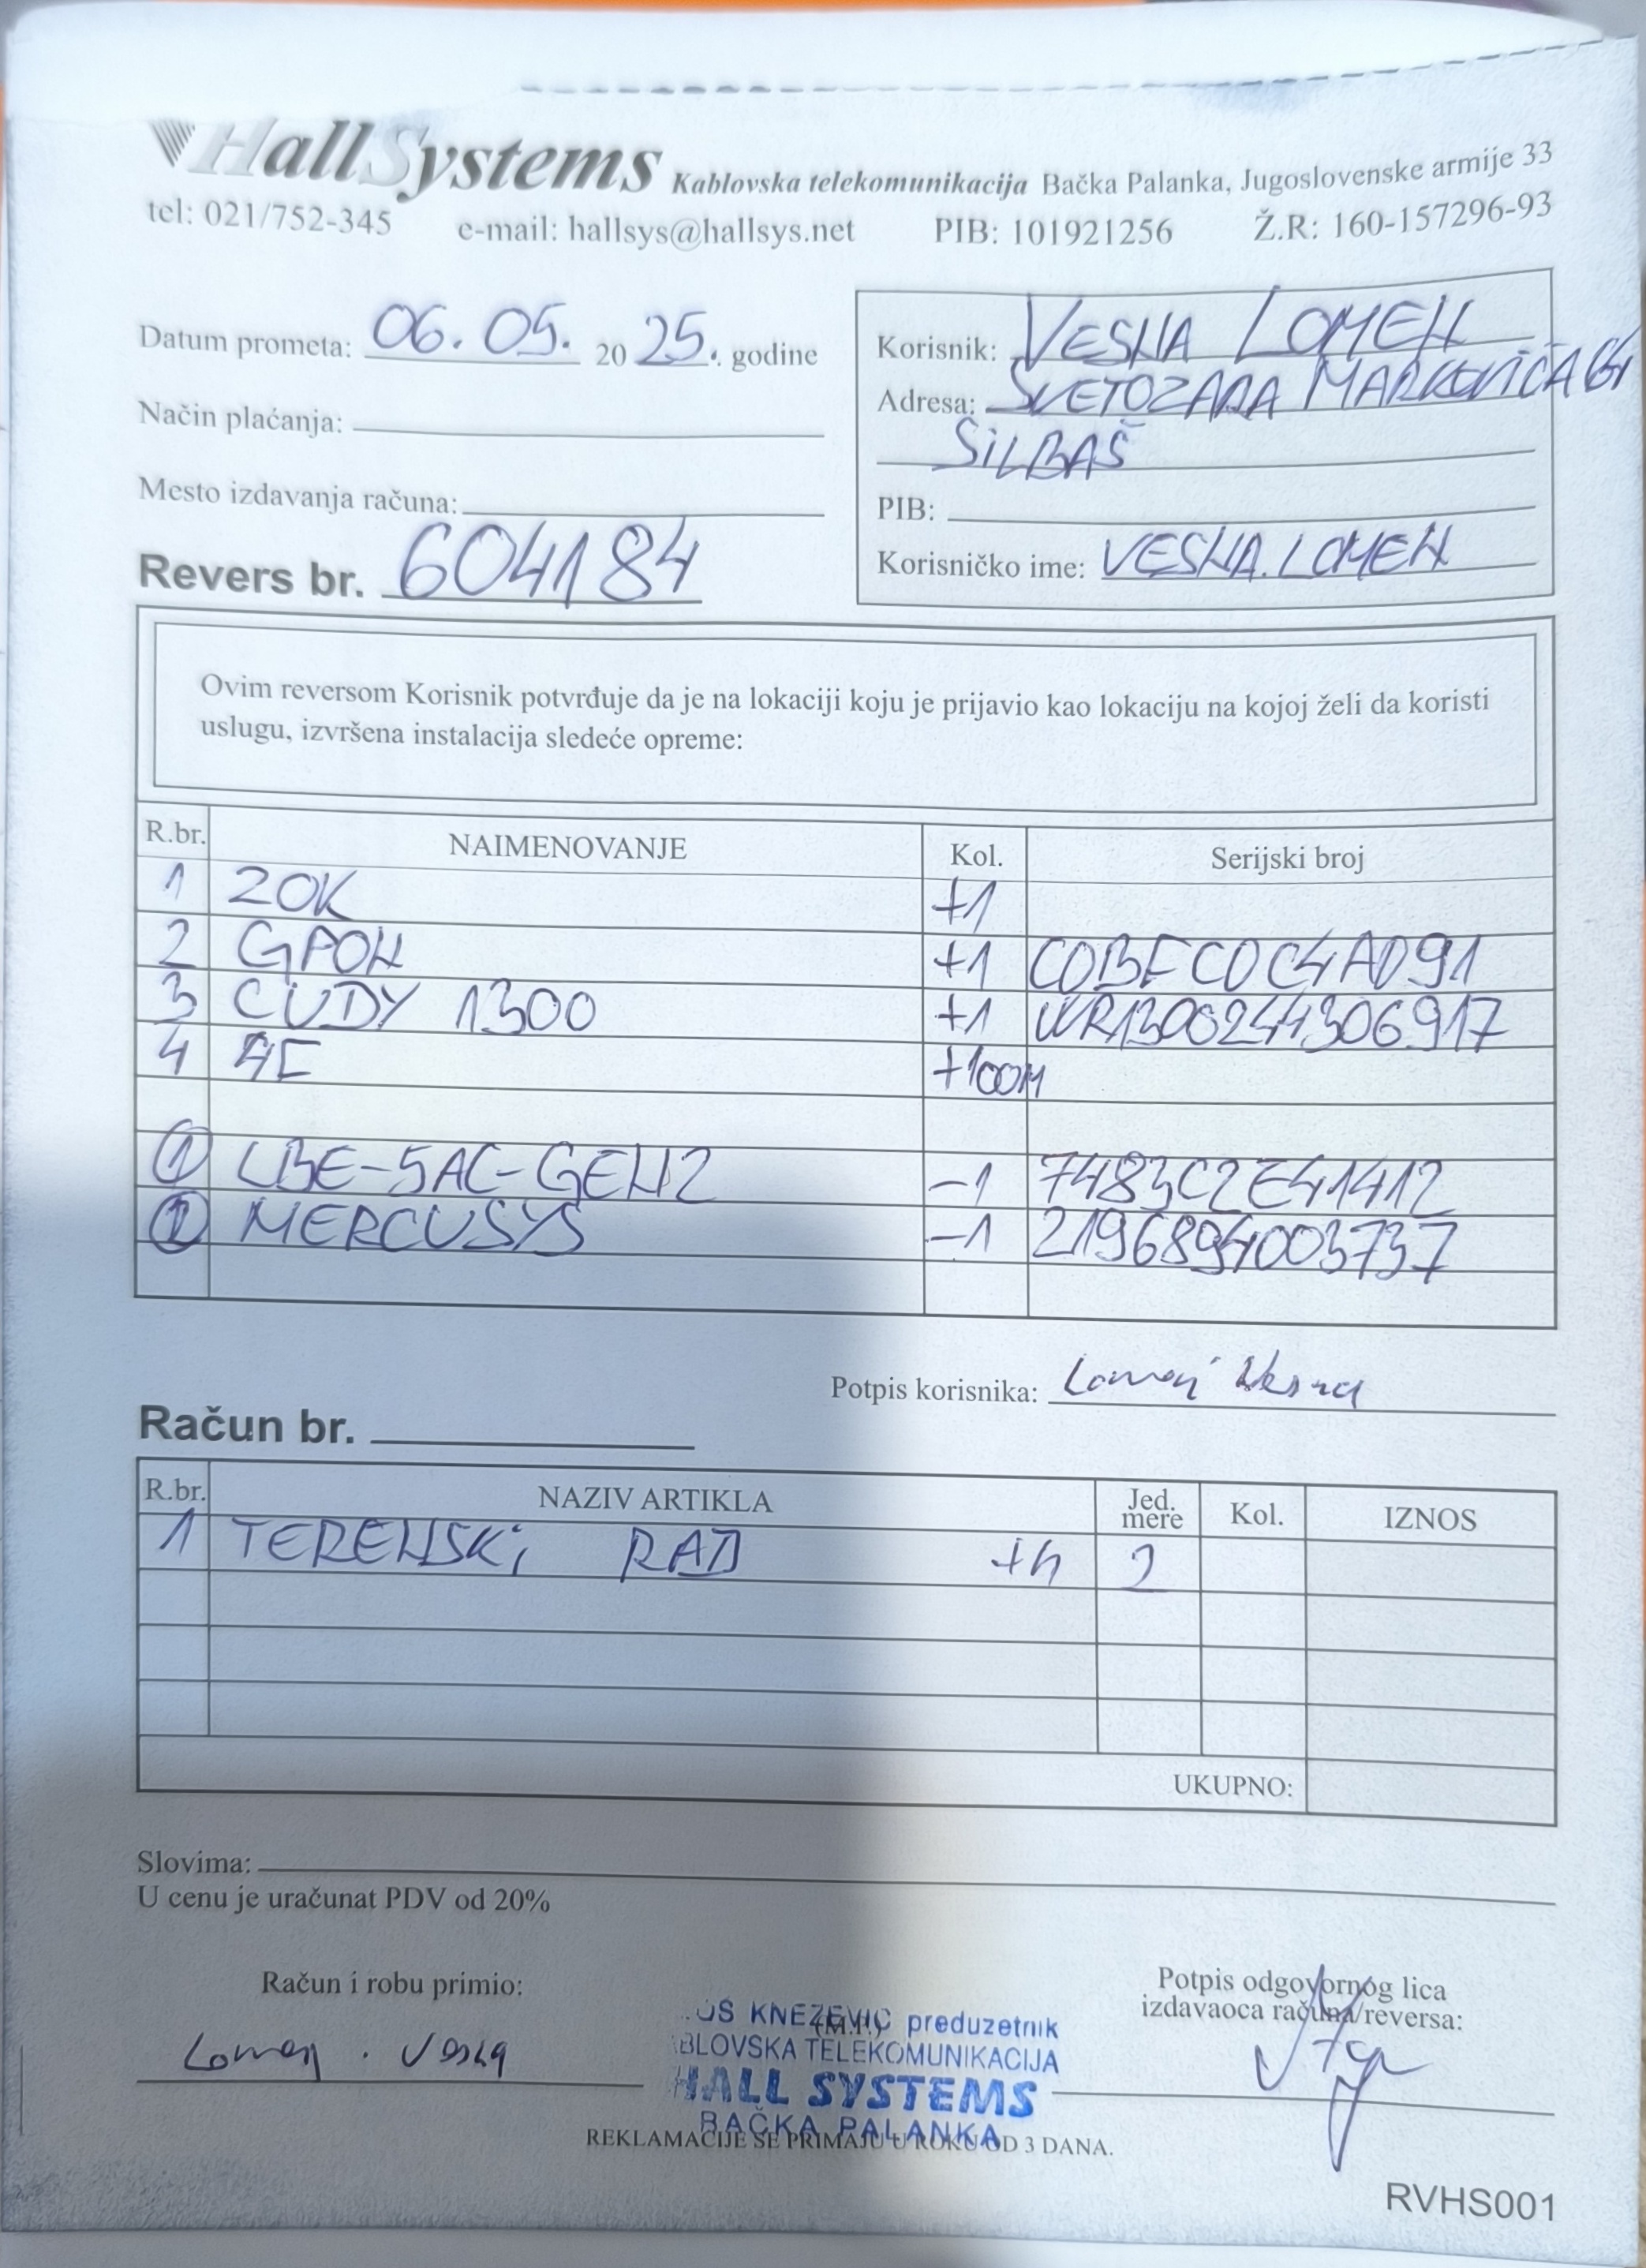 HallSystems Kablovska telekomunikacija Bačka Palanka, Jugoslovenske armije 33
tel: 021/752-345 e-mail: hallsys@hallsys.net PIB: 101921256 Ž.R: 160-157296-93
Datum prometa: 06.05. 2025. godine
Način plaćanja:
Mesto izdavanja računa:
Revers br. 604184
Korisnik: VESNA LOMEN
Adresa: SVETOZARA MARKOVIĆA
SILBAŠ
PIB:
Korisničko ime: VESNA.LOMEN
Ovim reversom Korisnik potvrđuje da je na lokaciji koju je prijavio kao lokaciju na kojoj želi da koristi
uslugu, izvršena instalacija sledeće opreme:
R.br. NAIMENOVANJE Kol. Serijski broj
1 ZOK +1
2 GPON +1 C0BFC0C4AD91
3 CUDY 1300 +1 WR1300244306917
4 +100M
1 LBE-5AC-GEN2 -1 7483C2E41412
2 MERCUSYS -1 2196894003737
Potpis korisnika: Lomen Vesna
Račun br.
R.br. NAZIV ARTIKLA Jed. mere Kol. IZNOS
1 TERENSKI RAD +h 2
UKUPNO:
Slovima:
U cenu je uračunat PDV od 20%
Račun i robu primio:
Lomen . Vesna
(M.P.)
OŠ KNEŽEVIĆ preduzetnik
BLOVSKA TELEKOMUNIKACIJA
HALL SYSTEMS
BAČKA PALANKA
Potpis odgovornog lica
izdavaoca računa/reversa:
REKLAMACIJE SE PRIMAJU U ROKU OD 3 DANA.
RVHS001